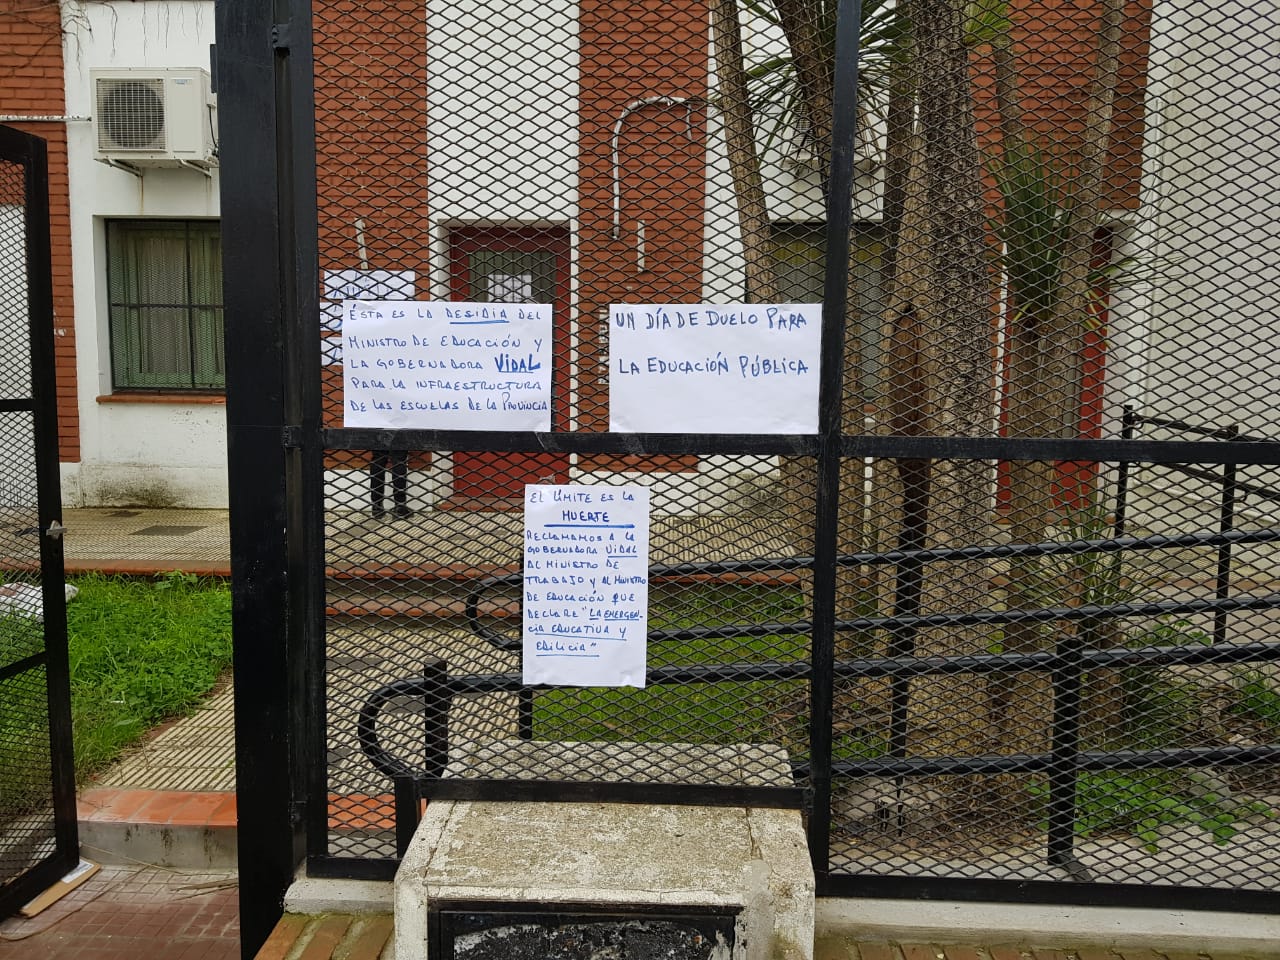 ÉSTA ES LA DESIDIA DEL
MINISTRO DE EDUCACIÓN Y
LA GOBERNADORA VIDAL
PARA LA INFRAESTRUCTURA
DE LAS ESCUELAS DE LA PROVINCIA
UN DÍA DE DUELO PARA
LA EDUCACIÓN PÚBLICA
EL LÍMITE ES LA
MUERTE
RECLAMAMOS A LA
GOBERNADORA VIDAL
AL MINISTRO DE
TRABAJO Y AL MINISTRO
DE EDUCACIÓN QUE
DECLARE "LA EMERGEN-
CIA EDUCATIVA Y
EDILICIA"